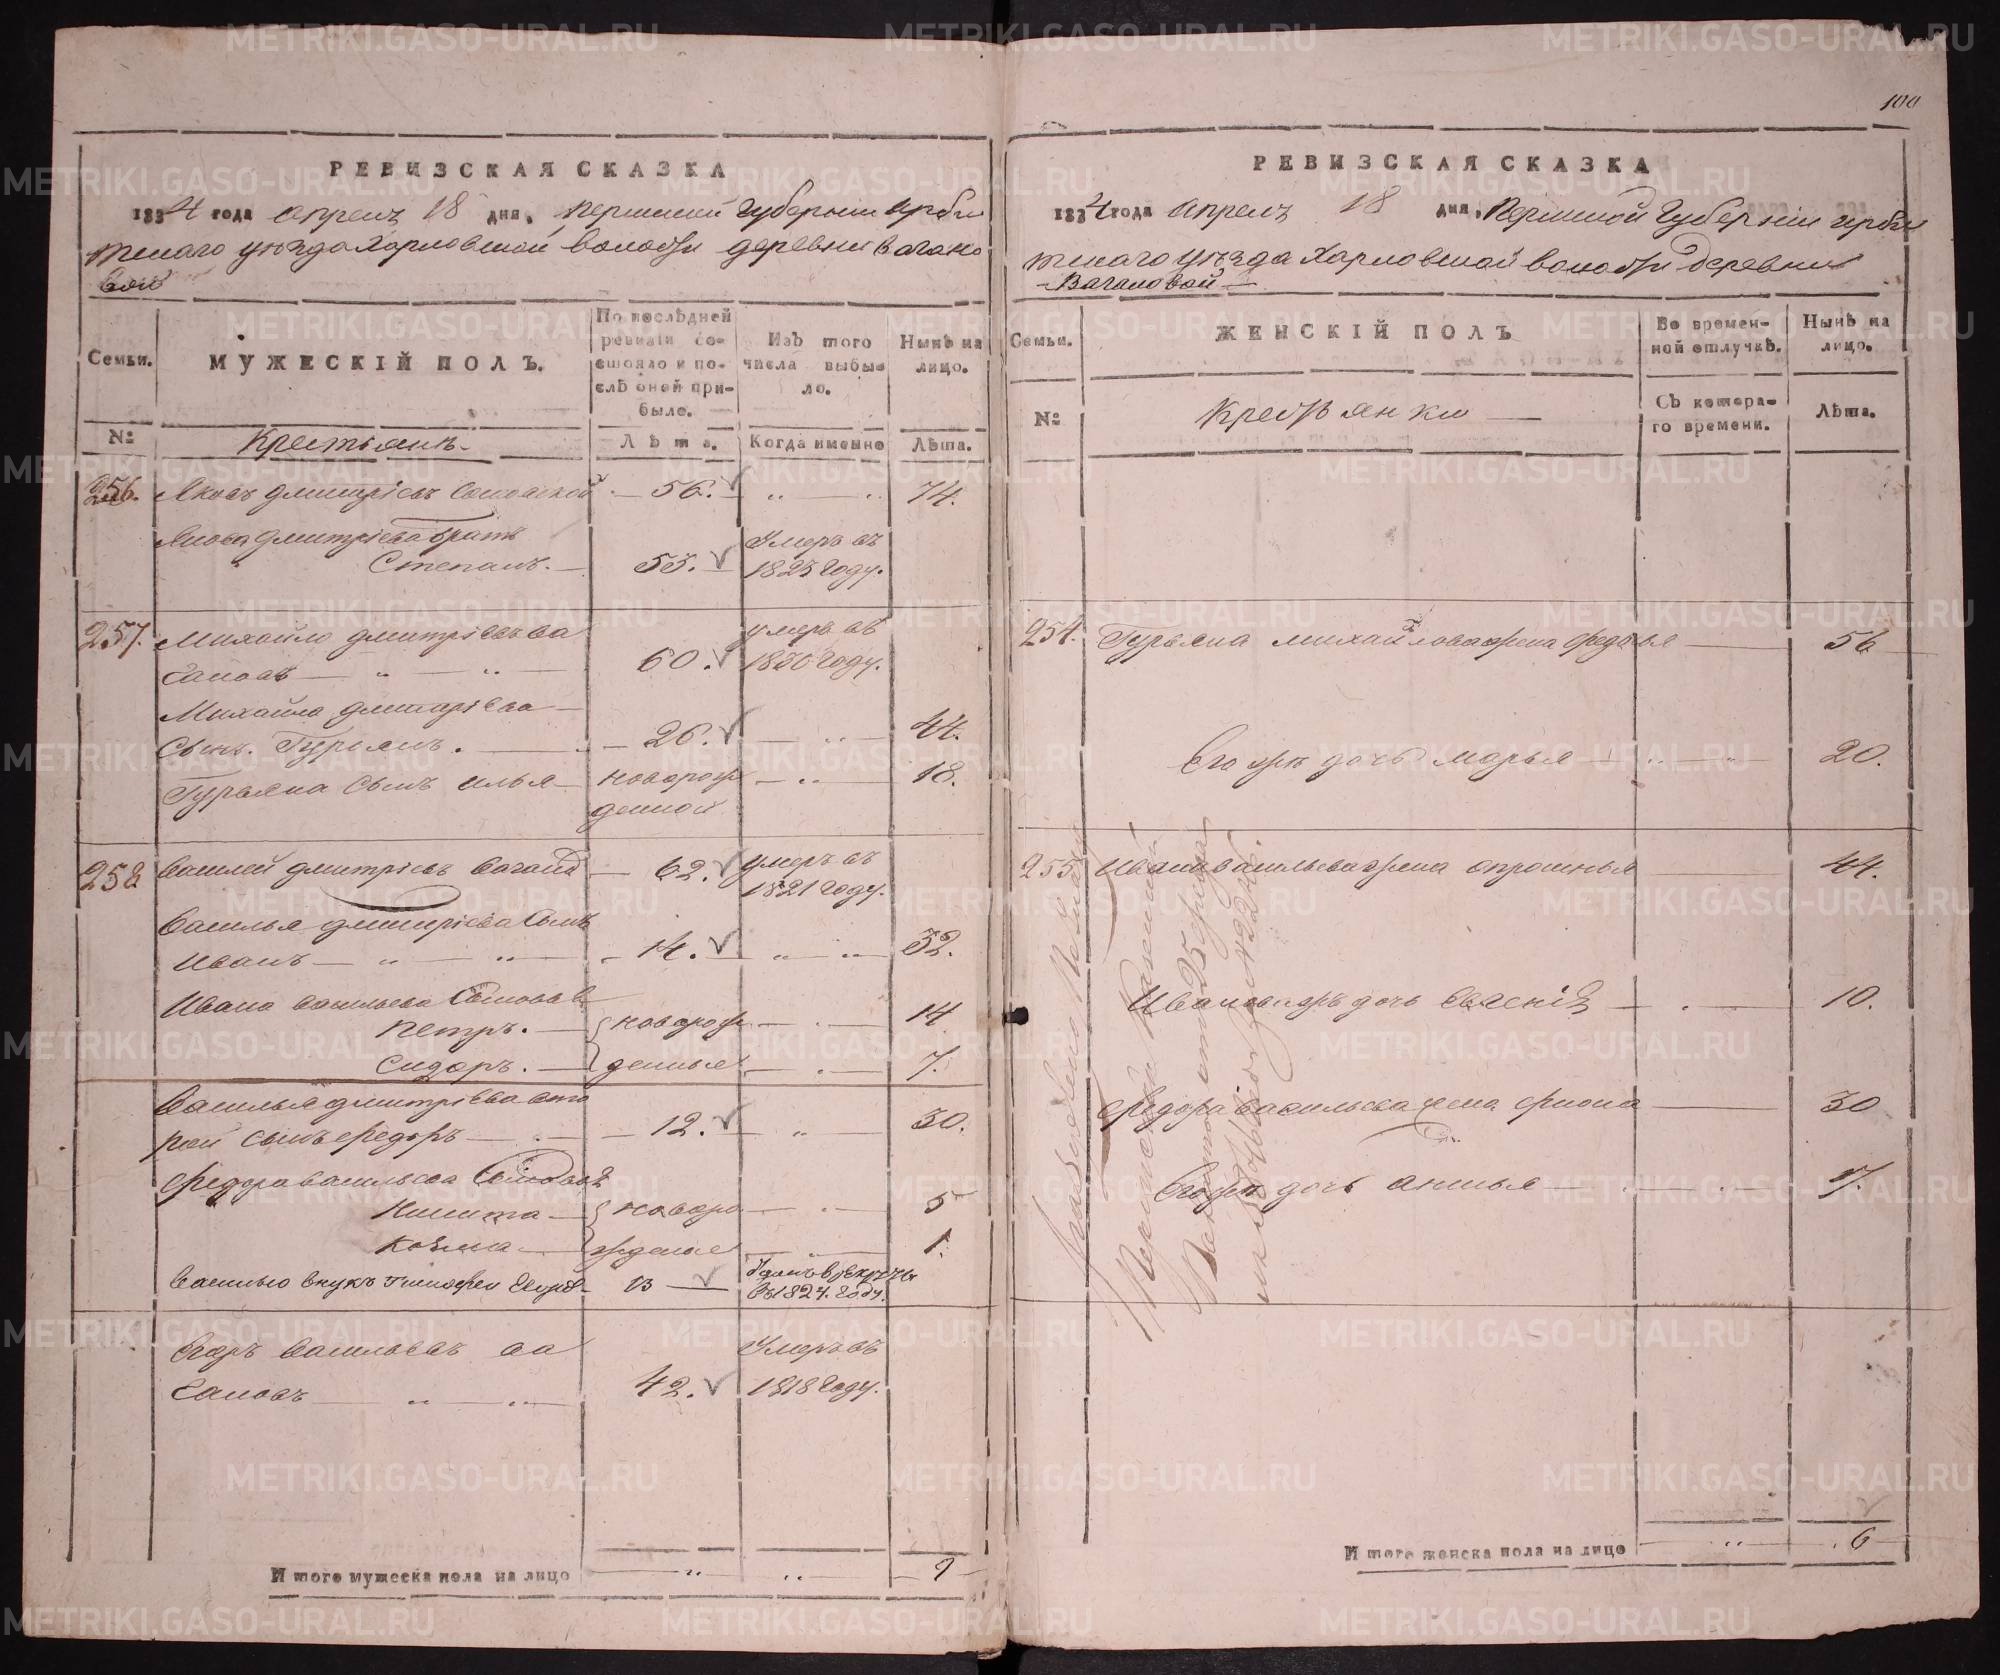 РЕВИЗСКАЯ СКАЗКА
1834 года апреля 18 дня, Пермской Губернии Ирби
тскаго уезда Харловской волости деревни Вагано
вой
Семьи.
МУЖЕСКІЙ ПОЛЪ.
По последней ревизіи состояло и послѣ оной прибыло.
Изъ того числа выбыло.
Нынѣ на лицо.
№
Крестьянъ
Лѣта.
Когда именно
Лѣта.
256. Яковъ Дмитріевъ 56. 74.
Якова Дмитріева братъ
Степанъ. 55. Умеръ въ 1825 году.
257. Михайло Дмитріевъ Ва
гановъ 60. умеръ въ 1830 году.
Михайла Дмитріева
Сынъ. Гурьянъ. 26. 44.
Гурьяна сынъ Илья новорожденной 18.
258 Василей Дмитріевъ Ваганов 62. умеръ въ 1821 году.
Василья Дмитріева Сынъ
Иванъ 14. 32.
Ивана Васильева Сыновья
Петръ. новорож 14
Сидоръ. денныя 7.
Василья Дмитріева вто
рой сынъ Федоръ 12. 30.
Федора Васильева Сыновья
Никита новоро 5
Козма жденые 1.
Василью внукъ Тимофей Егоров 13 в рекруты въ 1824. году.
Егоръ Васильевъ Ва
гановъ 42. Умеръ въ 1818 году.
И того мужеска пола на лицо 9
100
РЕВИЗСКАЯ СКАЗКА
1834 года апреля 18 дня, Пермской Губерніи Ирби
тскаго уезда Харловской волости деревни
Вагановой
Семьи.
ЖЕНСКІЙ ПОЛЪ
Во временной отлучкѣ.
Нынѣ на лицо.
№
Крестьянки
Съ котораго времени.
Лѣта.
254. Гурьяна Михайлова жена Федосья 56
Его же дочь Марья 20.
255 Ивана Васильева жена Апросинья 44.
Иванова жъ дочь Евгенія 10.
Федора Васильева жена Фиона 30
Его же дочь Аннья 7.
Пермской Казенной
Палаты от 25
И того женска пола на лицо 6